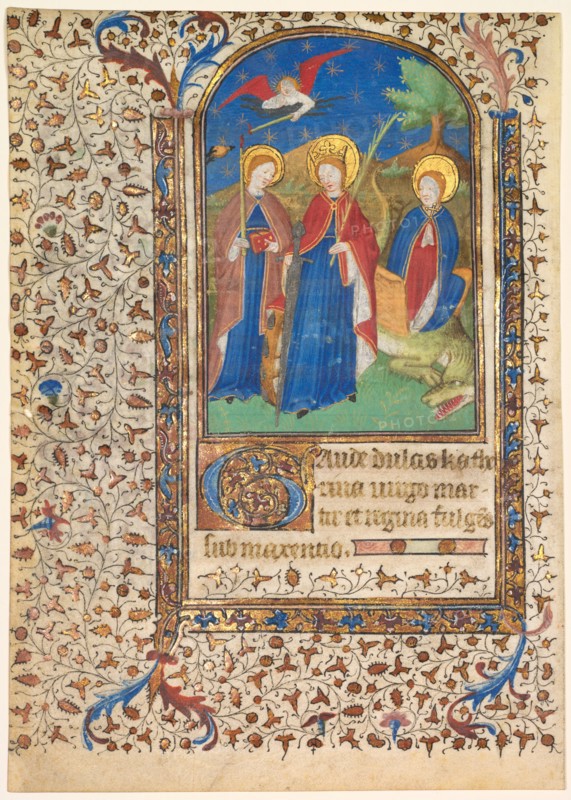 Gaude dulcis kathe
rina uirgo mar-
tir et regina fulgēs
sub maxentio.